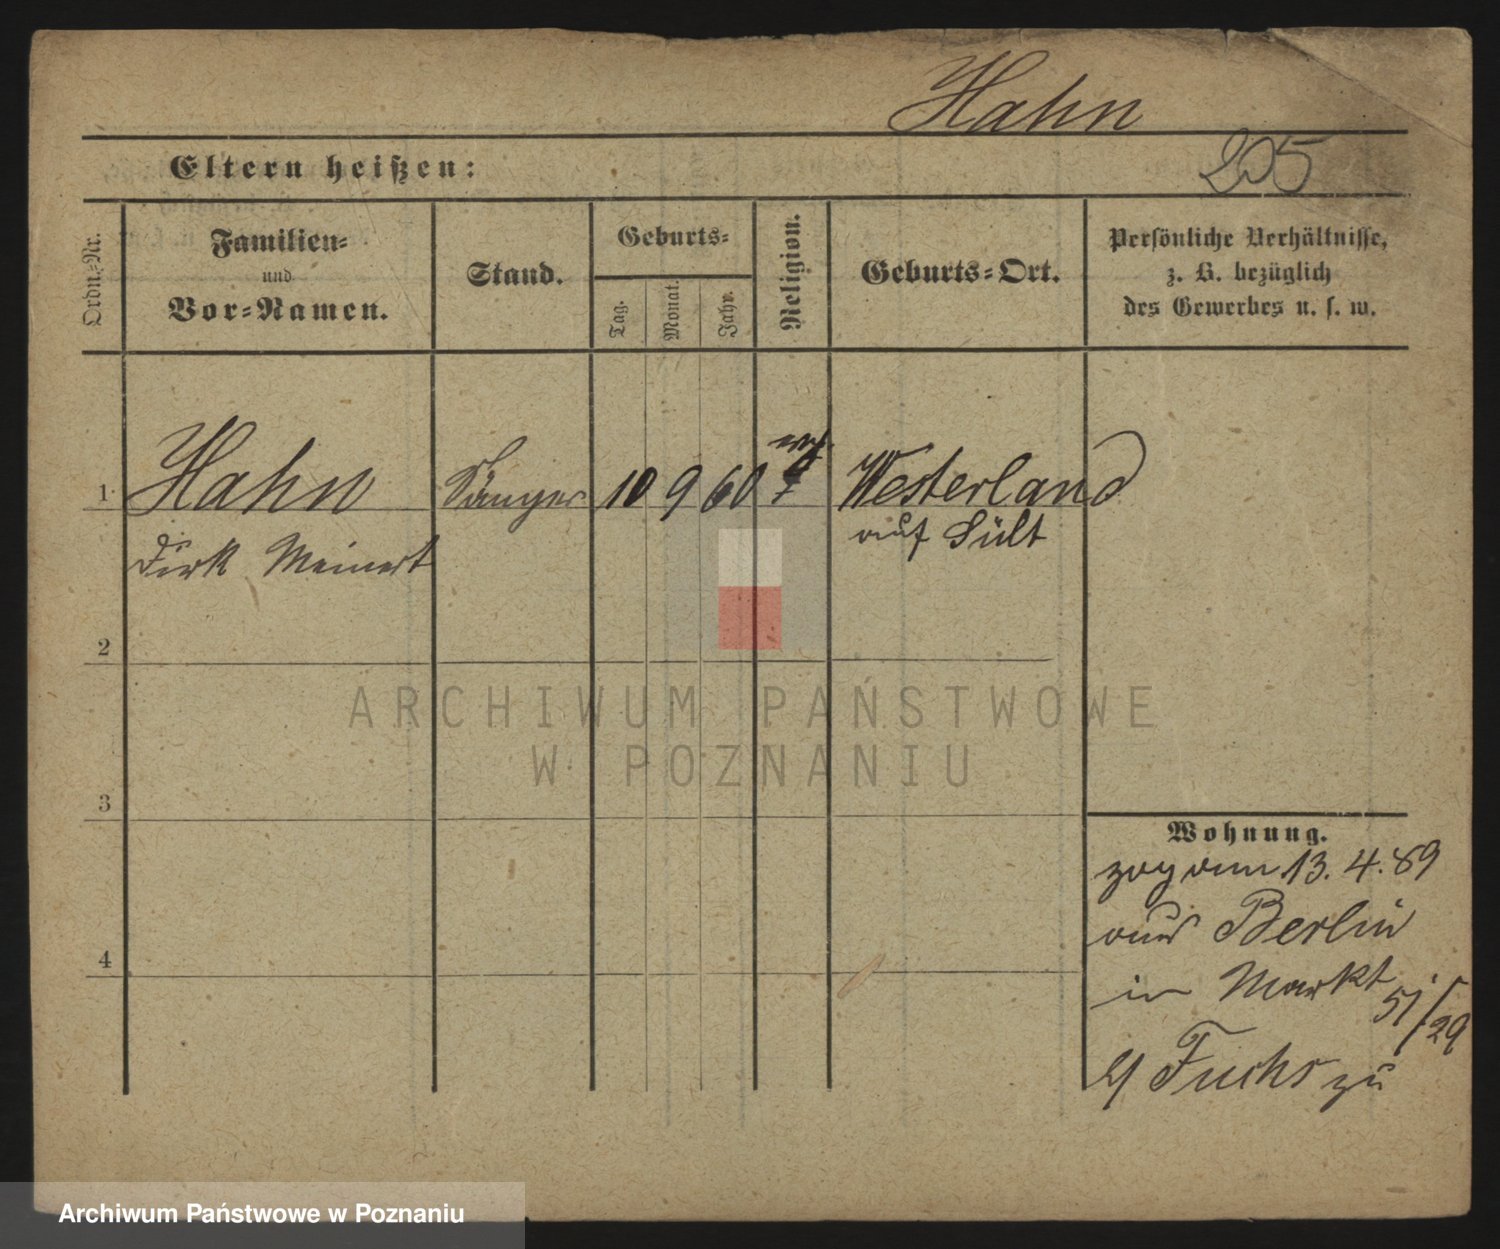 Hahn
205
Eltern heißen:
Ordn.-Nr.
Familien-
und
Vor-Namen.
Stand.
Geburts-
Tag.
Monat.
Jahr.
Religion.
Geburts-Ort.
Persönliche Verhältnisse,
z. B. bezüglich
des Gewerbes u. s. w.
1 Hahn Sänger 10 9 60 Westerland
Dirk Meinert auf Sült
2
3
4
Wohnung.
zog am 13. 4. 89
aus Berlin
in Markt 51/29
Fuchs zu
ARCHIWUM PAŃSTWOWE
W POZNANIU
Archiwum Państwowe w Poznaniu